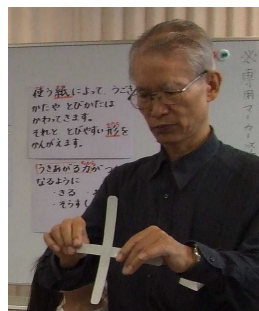 使う紙によって、うごき
かたや とびかたは
かわってきます。
それと とびやすい形を
かんがえます。
うきあがる力が
なるように
・きる
・そらす
専用マーカー